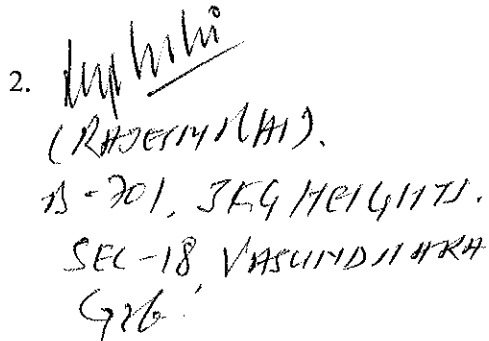 2.
(RAJESH RAI).
B-701, JKG HEIGHTS.
SEC-18 VASUNDHARA
GZB.